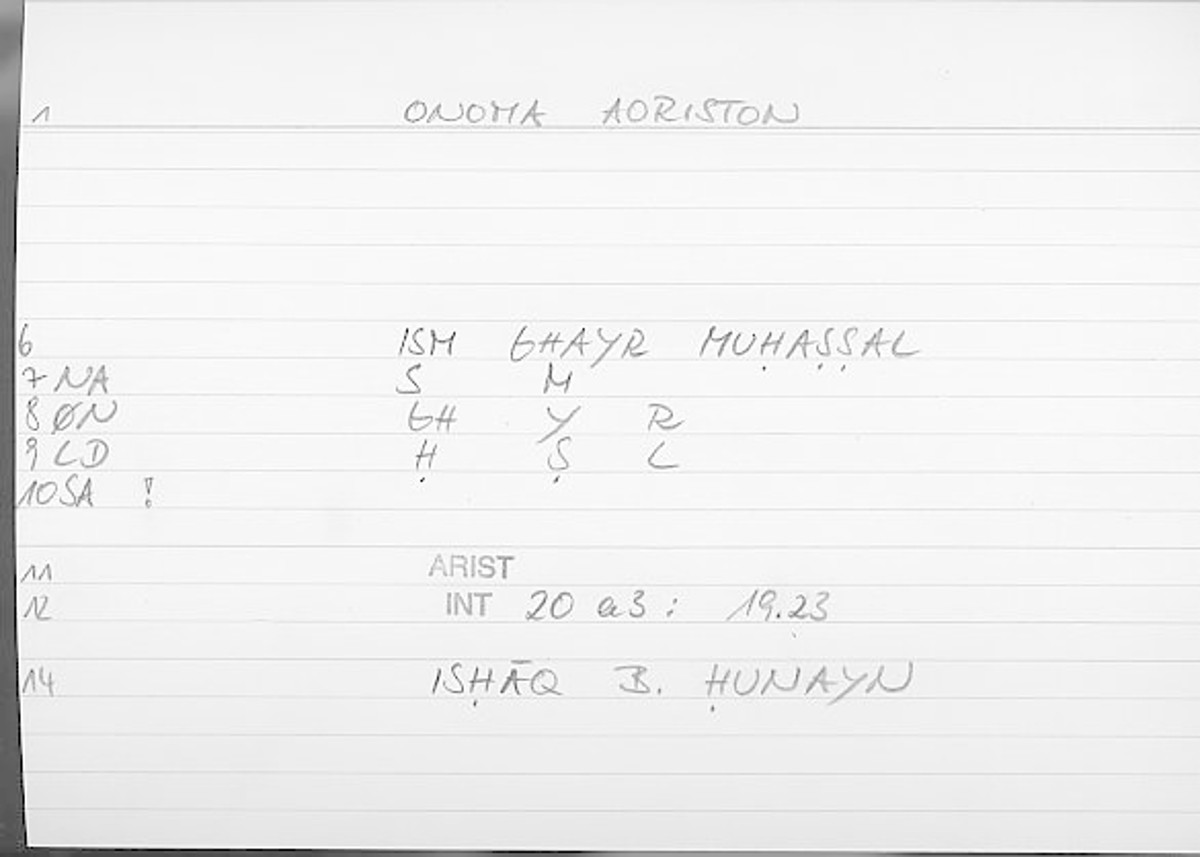 1 ONOMA AORISTON
6 ISM GHAYR MUḤAṢṢAL
7 NA S M
8 ØN GH Y R
9 LD Ḥ Ṣ L
10 SA !
11 ARIST
12 INT 20 a3 : 19.23
14 ISḤĀQ B. ḤUNAYN